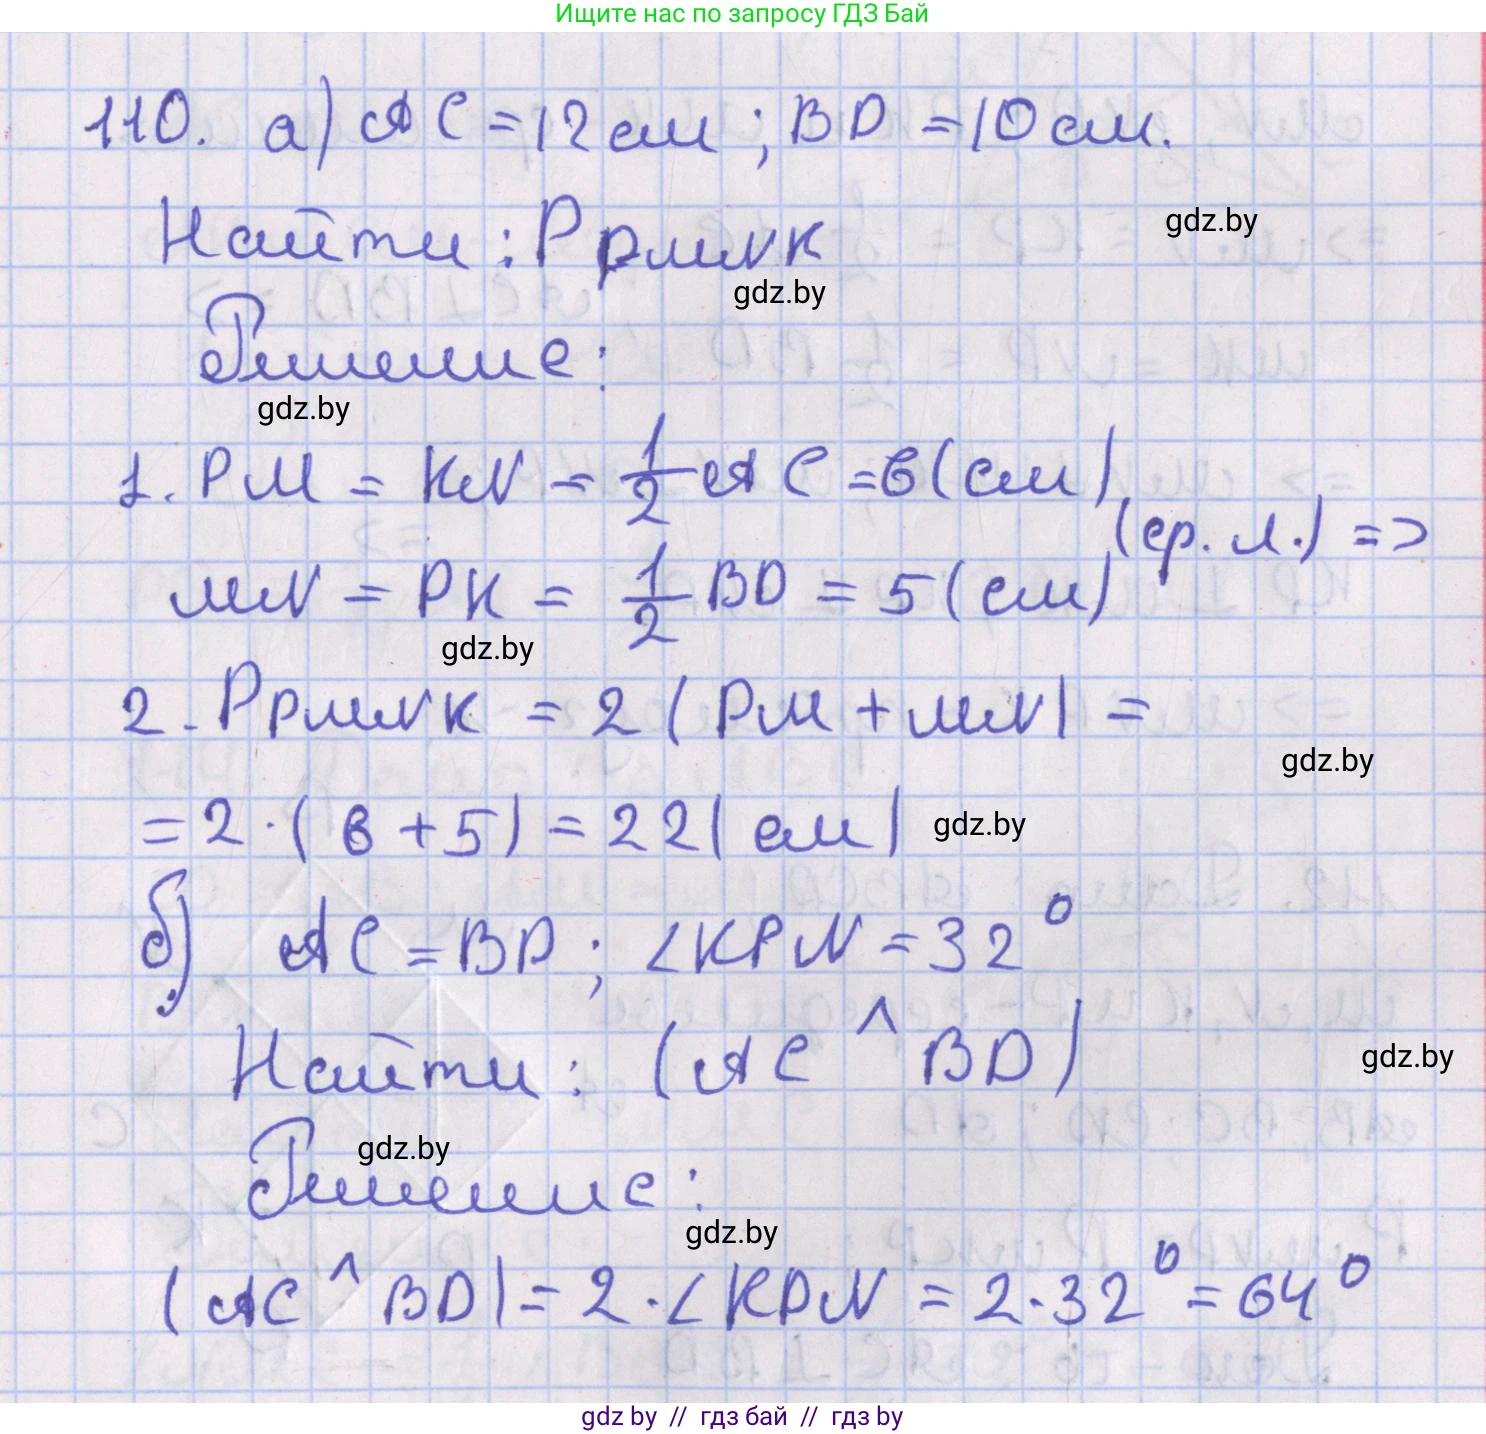 Ищите нас по запросу ГДЗ Бай
110. а) AC = 12 см ; BD = 10 см.
Найти : P PMNK
gdz.by
gdz.by
Решение :
gdz.by
1. PM = KN = 1/2 AC = 6 (см)
(ср. л.) =>
MN = PK = 1/2 BD = 5 (см)
gdz.by
2. P PMNK = 2 (PM + MN) =
gdz.by
= 2 · (6 + 5) = 22 (см)
gdz.by
б) AC = BD ; ∠KPN = 32°
Найти : (AC ^ BD)
gdz.by
gdz.by
Решение :
gdz.by
(AC ^ BD) = 2 · ∠KPN = 2 · 32° = 64°
gdz by // гдз бай // гдз by